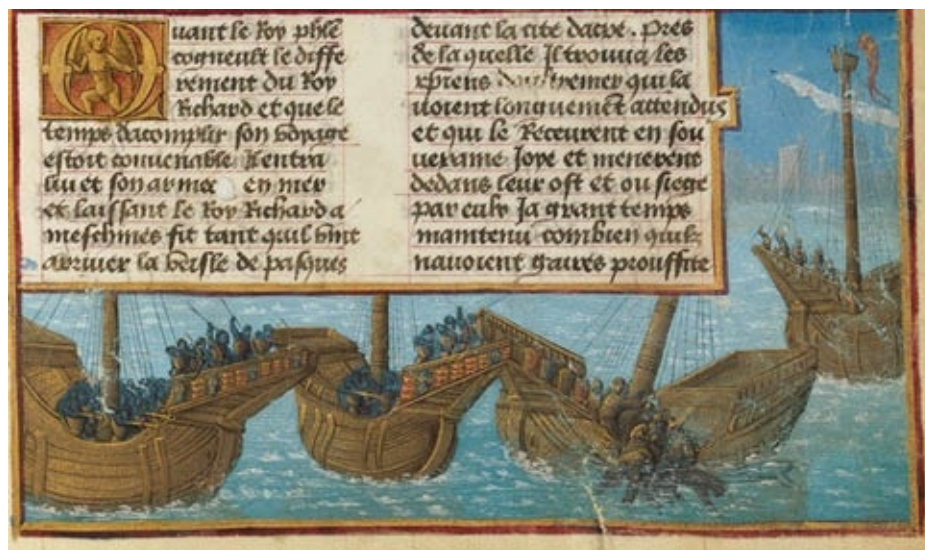 Quant le Roy phle
cogneust le diffe
rement du Roy
Richard et que le
temps dacomplir son voyage
estoit convenable Il entra
luy et son armee en mer
et laissant le Roy Richard a
meschines fit tant quil vint
arriver la veisle de pasques
devant la cite dacre. Pres
de la quelle Il trouva les
xpiens doultremer qui la
lavoient longuement attendus
et qui le Receurent en sou
veraine Joye et menerent
dedans leur ost et ou siege
par eulx Ja grant temps
maintenu combien quilz
navoient gaires prouffite